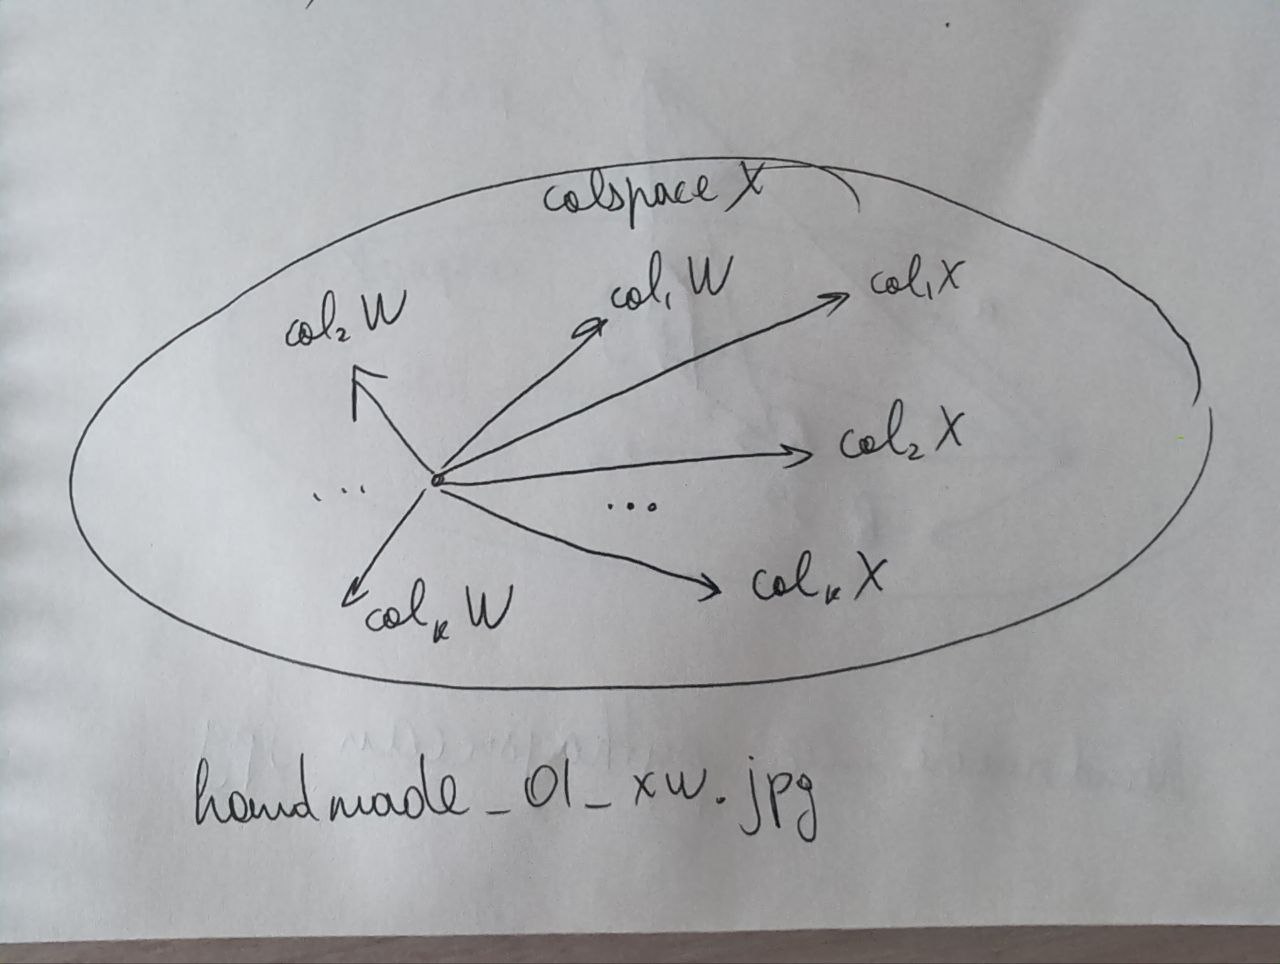 colspace X
col₁ W
col₁ X
col₂ W
col₂ X
...
...
colₖ X
colₖ W
handmade_01_xw.jpg